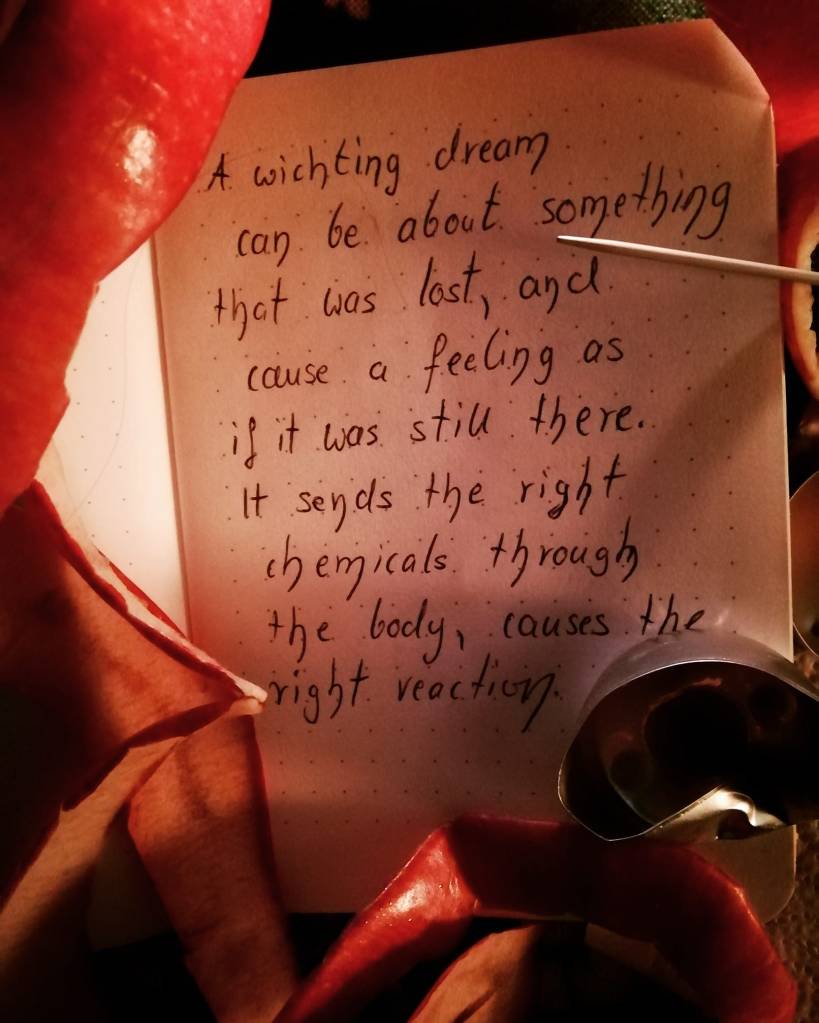 A wichting dream
can be about something
that was lost, and
cause a feeling as
if it was still there.
It sends the right
chemicals through
the body, causes the
right reaction.